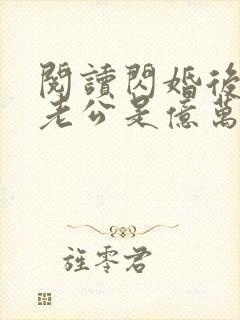 閱讀閃婚後
老公是億萬
旌零君